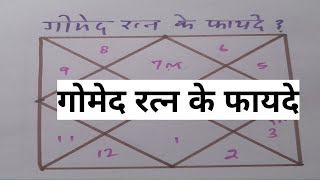 गोमेद रत्न के फायदे ?
8 6
9 7M 5
गोमेद रत्न के फायदे
11 1 3
12 2